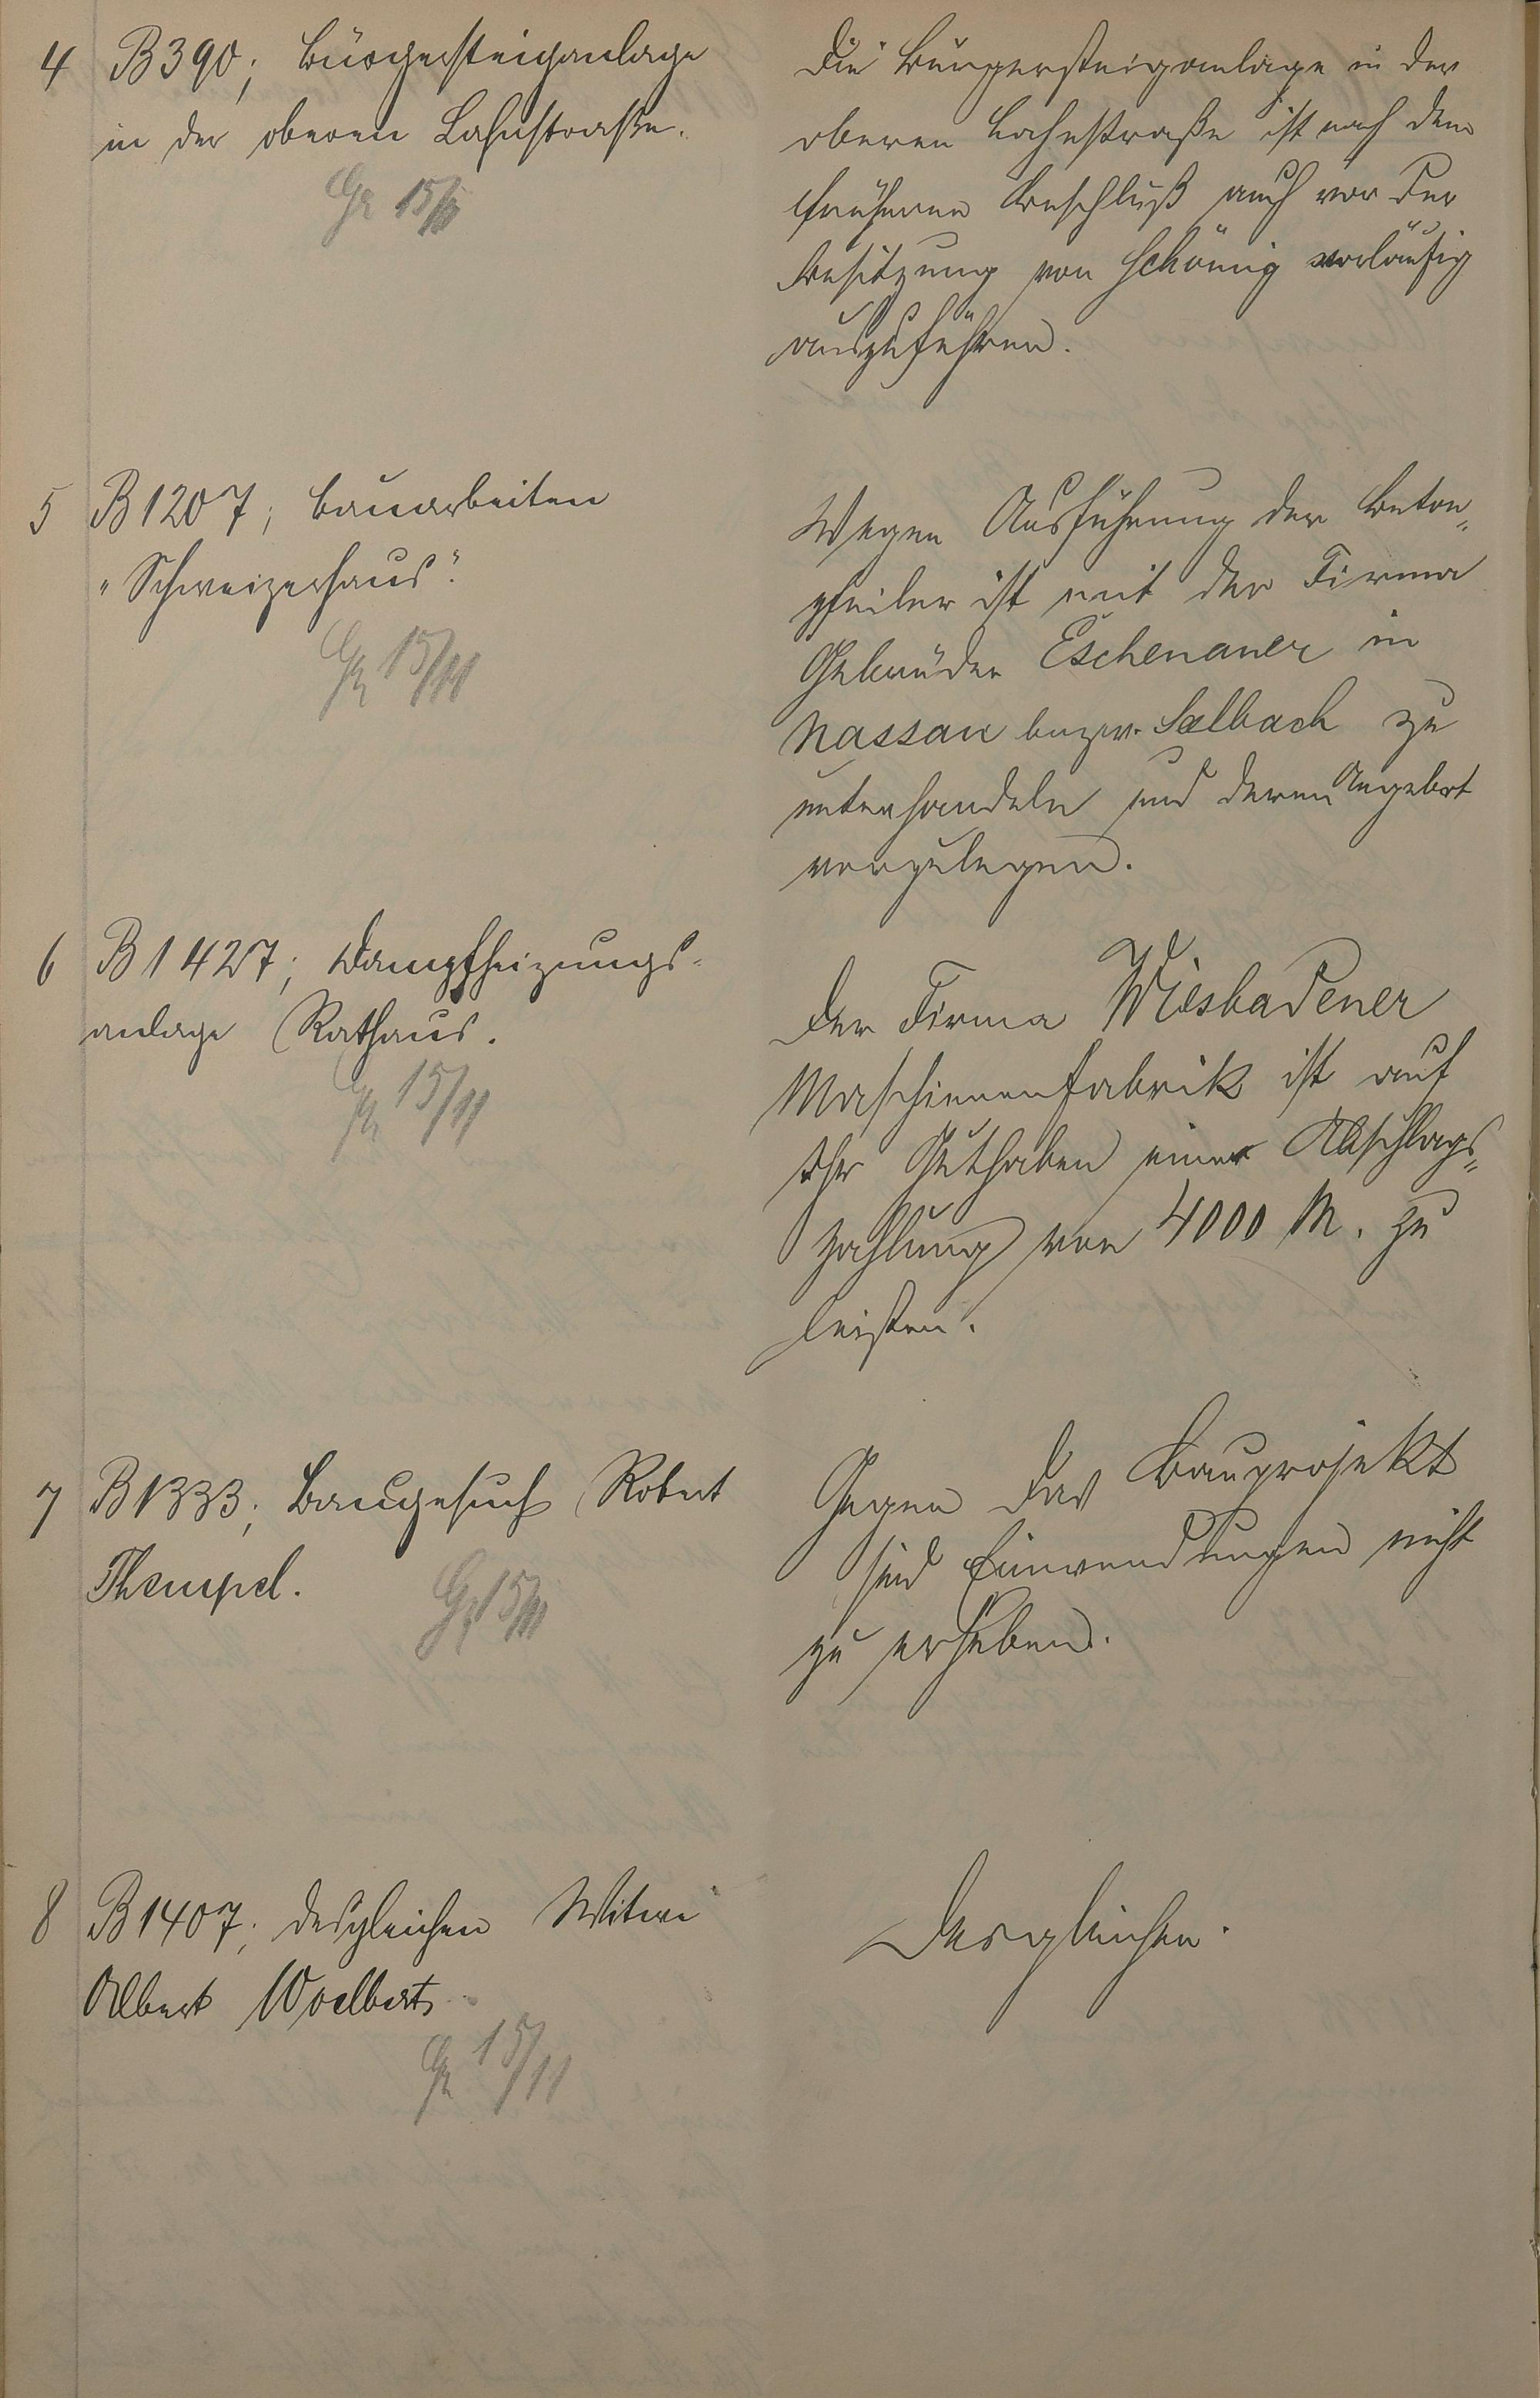 4 B 390; Bürgersteiganlage
in der oberen Lahnstraße.
15/11
Die Bürgersteiganlage in der
oberen Lahnstraße ist nach dem
früheren Beschluß auch vor der
Besitzung von Schönig vorläufig
auszuführen.
5 B 1207; Bauarbeiten
„Schweizerhaus".
15/11
Wegen Ausführung der Beton-
pfeiler ist mit der Firma
Gebrüder Eschenauer in
Nassau bezw. Selbach zu
unterhandeln und deren Angebot
vorzulegen.
6 B 1427; Dampfheizungs-
anlage Rathaus.
15/11
Der Firma Wiesbadener
Maschinenfabrik ist auf
Ihr Guthaben eine Abschlags-
zahlung von 4000 M. zu
leisten.
7 B 1333; Baugesuch Robert
Thempel.
15/11
Gegen das Bauprojekt
sind Einwendungen nicht
zu erheben.
8 B 1407; desgleichen Witwe
Albert Woelbert
15/11
Desgleichen.